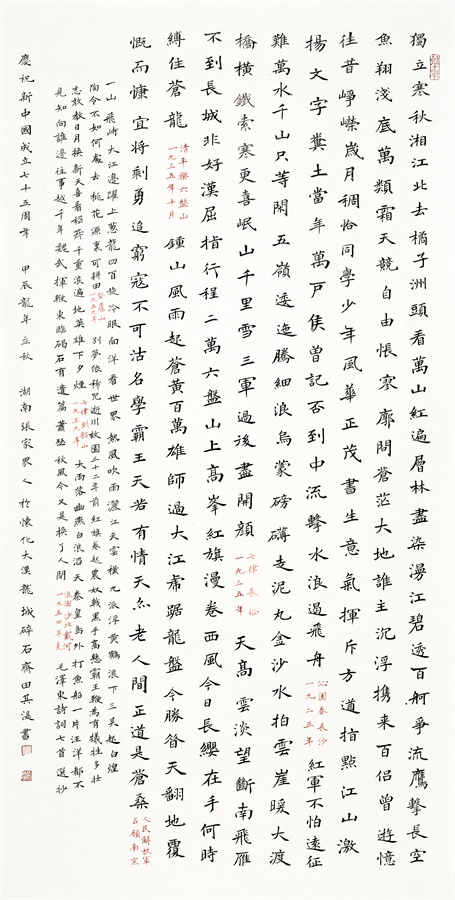 獨立寒秋湘江北去橘子洲頭看萬山紅遍層林盡染漫江碧透百舸爭流鷹擊長空
魚翔淺底萬類霜天競自由悵寥廓問蒼茫大地誰主沉浮携来百侣曾遊憶
往昔崢嶸歲月稠恰同學少年風華正茂書生意氣揮斥方遒指點江山激
揚文字糞土當年萬戶侯曾記否到中流擊水浪遏飛舟 紅軍不怕遠征
沁園春長沙
一九二五年
難萬水千山只等閑五嶺逶迤騰細浪烏蒙磅礴走泥丸金沙水拍雲崖暖大渡
橋橫鐵索寒更喜岷山千里雪三軍過後盡開顏 天高雲淡望斷南飛雁
七律長征
一九三五年
不到長城非好漢屈指行程二萬六盤山上高峯紅旗漫卷西風今日長纓在手何時
縛住蒼龍 鍾山風雨起蒼黃百萬雄師過大江虎踞龍盤今勝昔天翻地覆
清平樂六盤山
一九三五年十月
慨而慷宜將剩勇追窮寇不可沽名學霸王天若有情天亦老人間正道是蒼桑
人民解放軍
占領南京
一山飛峙大江邊躍上葱龍四百旋冷眼向洋看世界熱風吹雨灑江天雲橫九派浮黃鶴浪下三吳起白煙
陶令不知何處去桃花源裏可耕田 別夢依稀咒逝川故園三十二年前紅旗卷起農奴戟黑手高懸霸主鞭為有犧牲多壯
登廬山
一九五九年
志敢教日月換新天喜看稻菽千重浪遍地英雄下夕煙 大雨落幽燕白浪滔天秦皇島外打魚船一片汪洋都不
七律到韶山
一九五九年
見知向誰邊往事越千年魏武揮鞭東臨碣石有遺篇蕭瑟秋風今又是換了人間 毛澤東詩詞七首選抄
浪淘沙北戴河
一九五四年夏
慶祝新中國成立七十五周年 甲辰龍年立秋 湖南張家界人於懷化大漢龍城碎石齋田其湜書